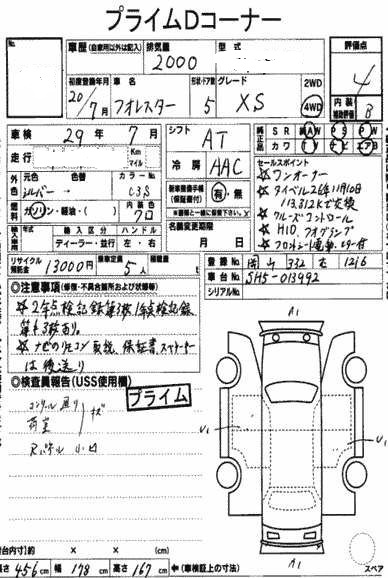 プライムDコーナー
No.
車歴 (自家用以外は記入) 排気量 型式 評価点
2000
4
初度登録年月 車名 形状・ドア数 グレード 2WD
20/7月 フォレスター 5 XS 4WD
内装 補助評価 B
車検 29年 7月 シフト AT
純正品 SR AW PS PW
カワ TV ナビ エアB
走行 Km マイル
冷房 AAC
セールスポイント
☆ワンオーナー
外色 元色 色替 カラーNo.
シルバー → C3S
☆タイベル26年11月10日
113,312Kで交換
新車整備手帳 (保証書付) 有・無
燃料 ガソリン・軽油・( ) 内装色 クロ
☆クルーズコントロール
☆HID、フォグランプ
輸入車 輸入区分 ハンドル
ディーラー・並行 左・右
名義変更期限 月 日
☆フロントシート電動、ヒーター付
リサイクル預託金 13000円 乗車定員 5人
登録No. 岡山 332 さ 1216
車台No. SH5-013992
シリアルNo.
◎注意事項 (修復・不具合箇所および状態等)
☆2年点検記録簿3枚、1年点検記録
簿3枚有り。
☆ナビのリモコン 取説 保証書 スペアキー
は後送り
◎検査員報告(USS使用欄)
プライム
コンソール廻り
荷室
キズ
Rパネル 小凹
A1
U1
U1
A1
荷台内寸(約) × × (cm)
長さ 456cm 幅 178cm 高さ 167cm ←(車検証上の寸法)
スペア